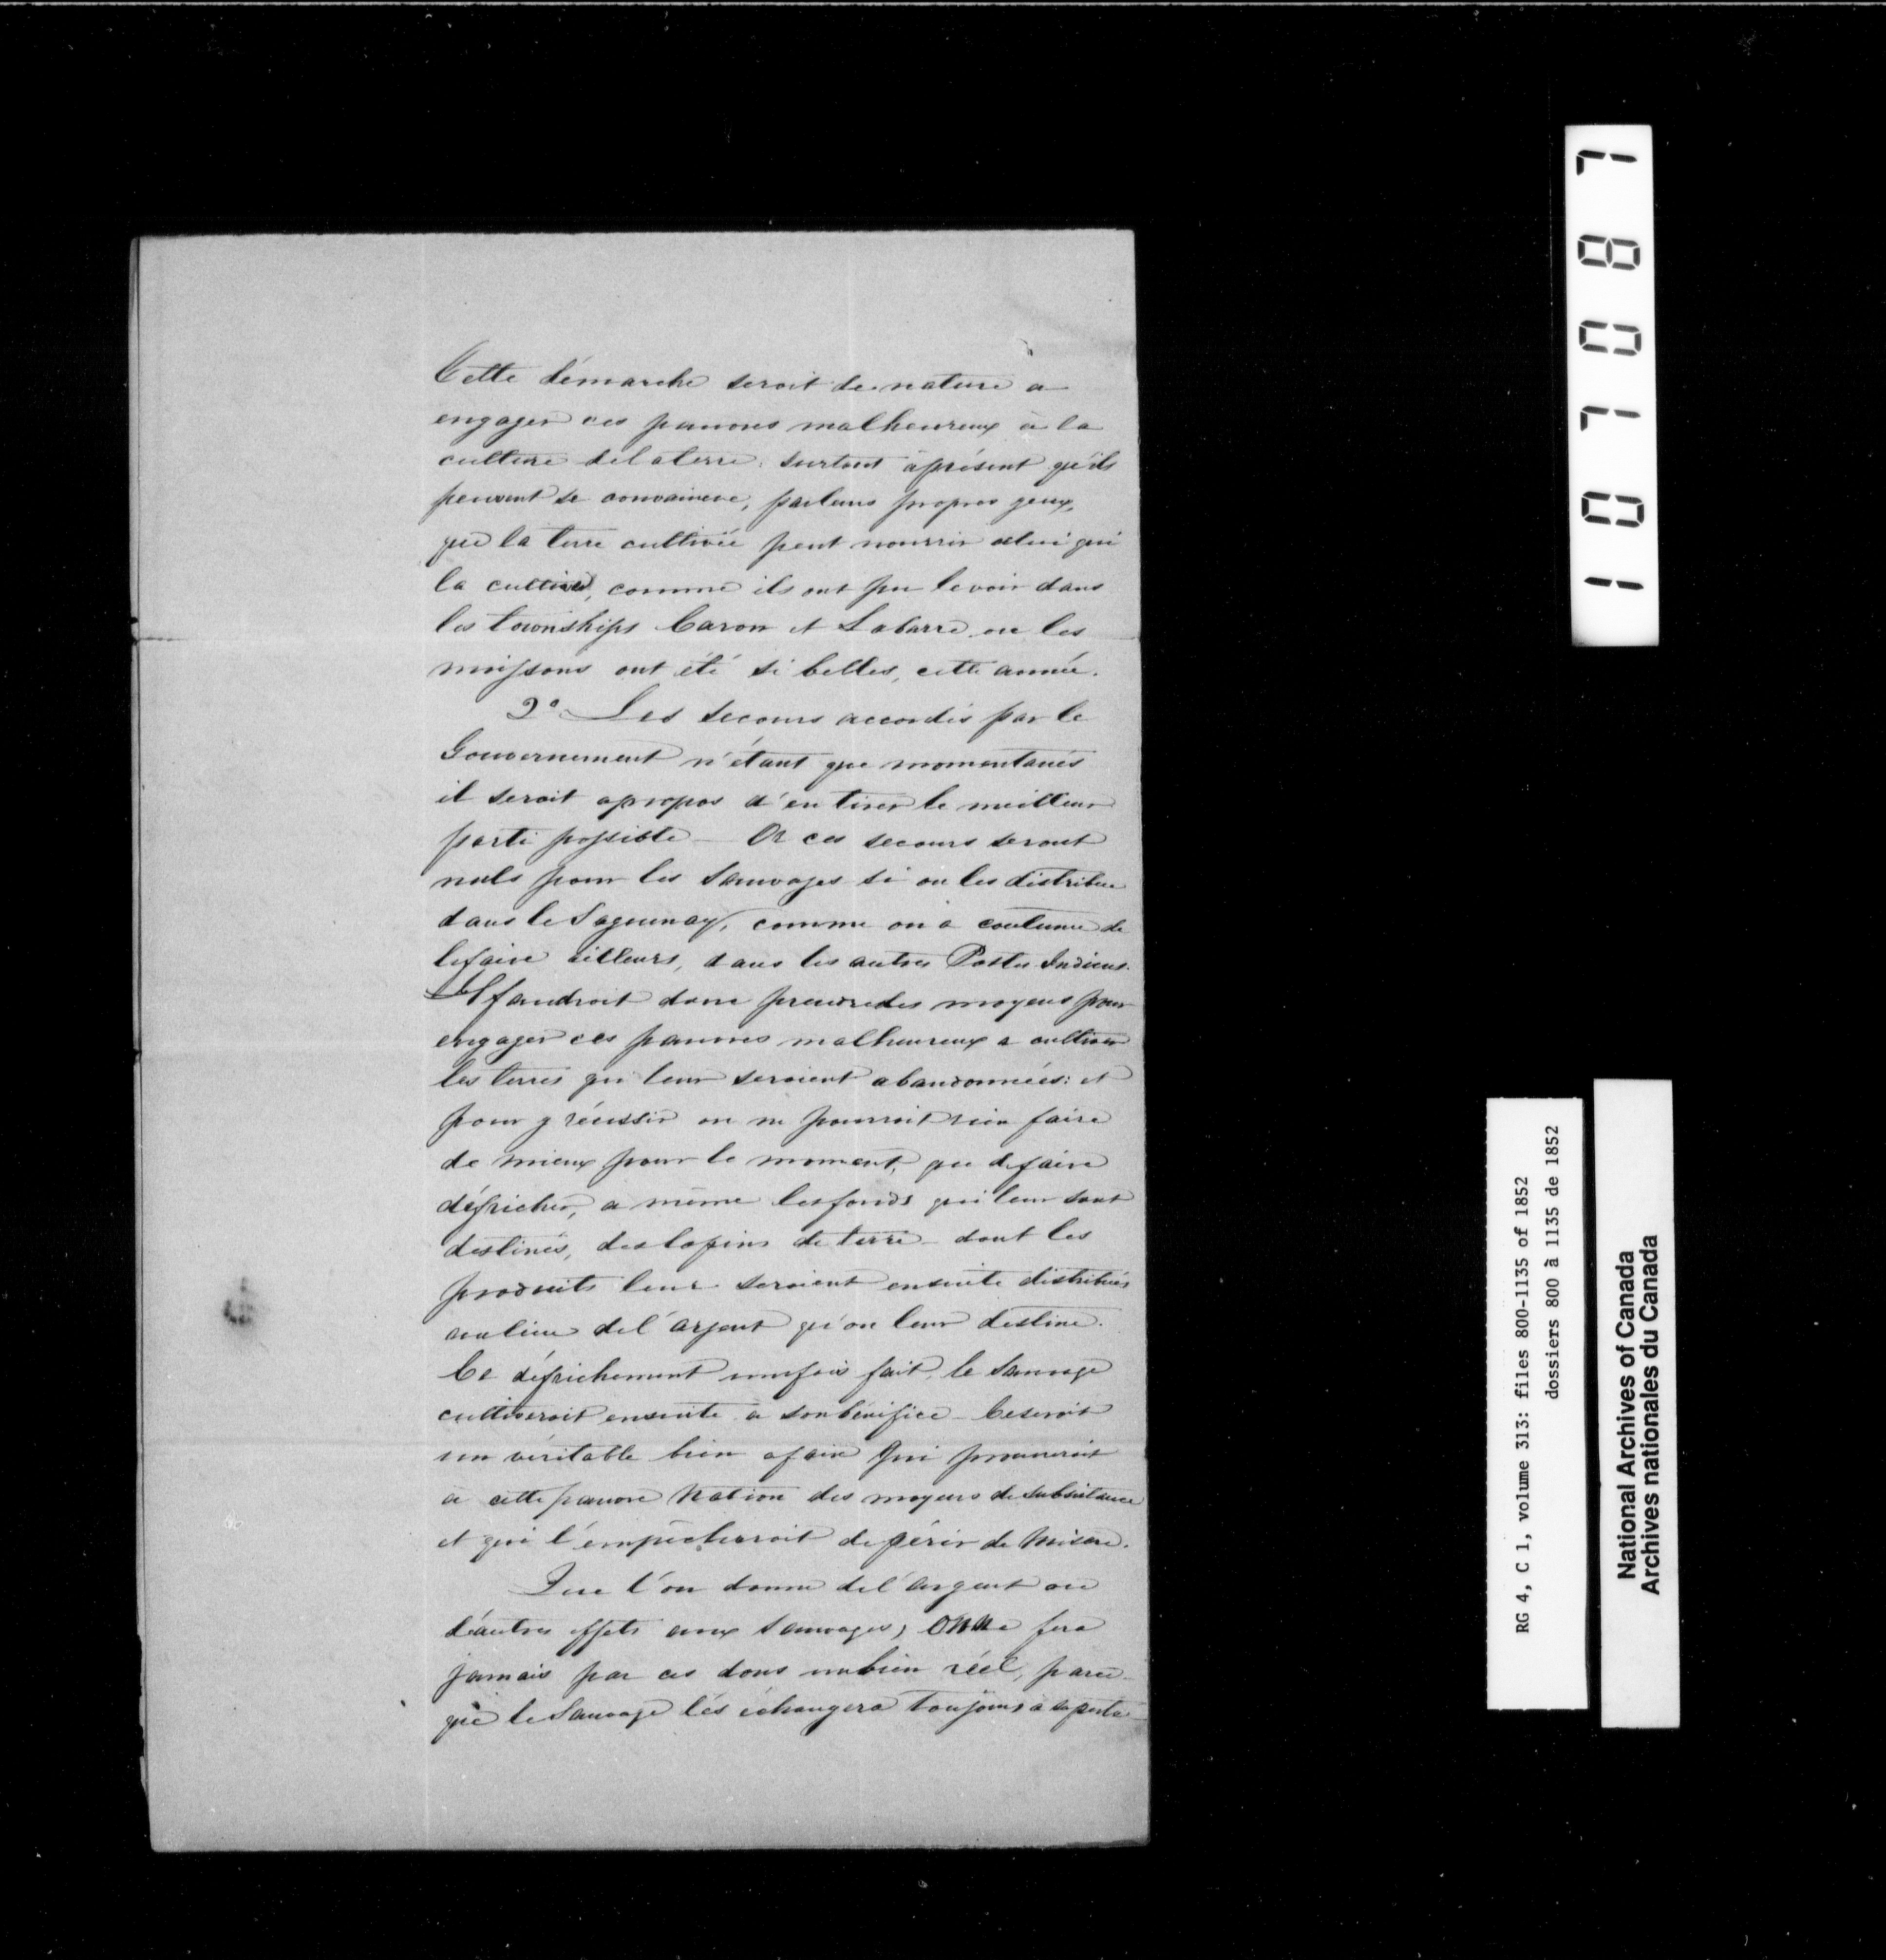 Cette démarche seroit de nature a
engager ces pauvres malheureux à la
culture delaterre, surtout àprésent qu'ils
peuvent se convaincre, parleurs propres yeux,
que la terre cultivée peut nourrir celui qui
la cultive, comme ils ont pu levoir dans
les townships Caron et Labarre ou les
moissons ont été si belles, cette année.
2º Les secours accordés par le
Gouvernement n'étant que momentanés
il seroit apropos d'en tirer le meilleur
parti possible — Or ces secours seront
nuls pour les Sauvages si on les distribue
dans le Saguenay, comme on a coutume de
lefaire ailleurs, dans les autres Postes Indiens.
Il faudroit donc prendredes moyens pour
engager ces pauvres malheureux a cultiver
les terres qui leur seroient abandonnées: et
pour y réussir on ne pourroit rien faire
de mieux pour le moment, que defaire
défricher, a même lesfonds qui leur sont
destinés, deslopins de terre dont les
produits leur seroient ensuite distribués
aulieu del'argent qu'on leur destine.
Ce défrichement unefois fait, le Sauvage
cultiveroit ensuite à sonbénéfice — Ceseroit
un véritable bien afaire Qui procureroit
a cette pauvre Nation des moyens de subsistance
et qui l'empêcheroit depérir de Misère.
Que l'on donne del'argent ou
d'autres effets aux Sauvages, on ne fera
jamais par ces dons unbien réel, parce
que le Sauvage les échangera toujours à saperte
1 0 7 0 8 7
RG 4, C 1, volume 313: files 800-1135 of 1852
dossiers 800 à 1135 de 1852
National Archives of Canada
Archives nationales du Canada